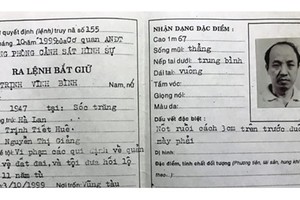 quyết định (lệnh) truy nã số 155
10 năm 1999 của Cơ quan ANĐT
PHÒNG CẢNH SÁT HÌNH SỰ
RA LỆNH BẮT GIỮ
TRỊNH VĨNH BÌNH Nam, nữ
1947 tại: Sóc trăng
Hà Lan
Trịnh Tiết Huê
Nguyễn Thị Giảng
Vi phạm các qui định về quản
vệ đất đai, và tội đưa hối lộ
11 năm tù
/10/1999 Nơi trốn: Vũng tàu
NHẬN DẠNG ĐẶC ĐIỂM :
Cao 1m 67
Sống mũi: thẳng
Nếp tai dưới: trung bình
Dái tai: vuông
Tầm vóc:
Giọng nói:
Màu da:
Dấu vết đặc biệt :
Nốt ruồi cách 3cm trên trước đầu
mày phải
Đặc điểm, tính chất đối tượng (Phương tiện, tài sản, hung khí,